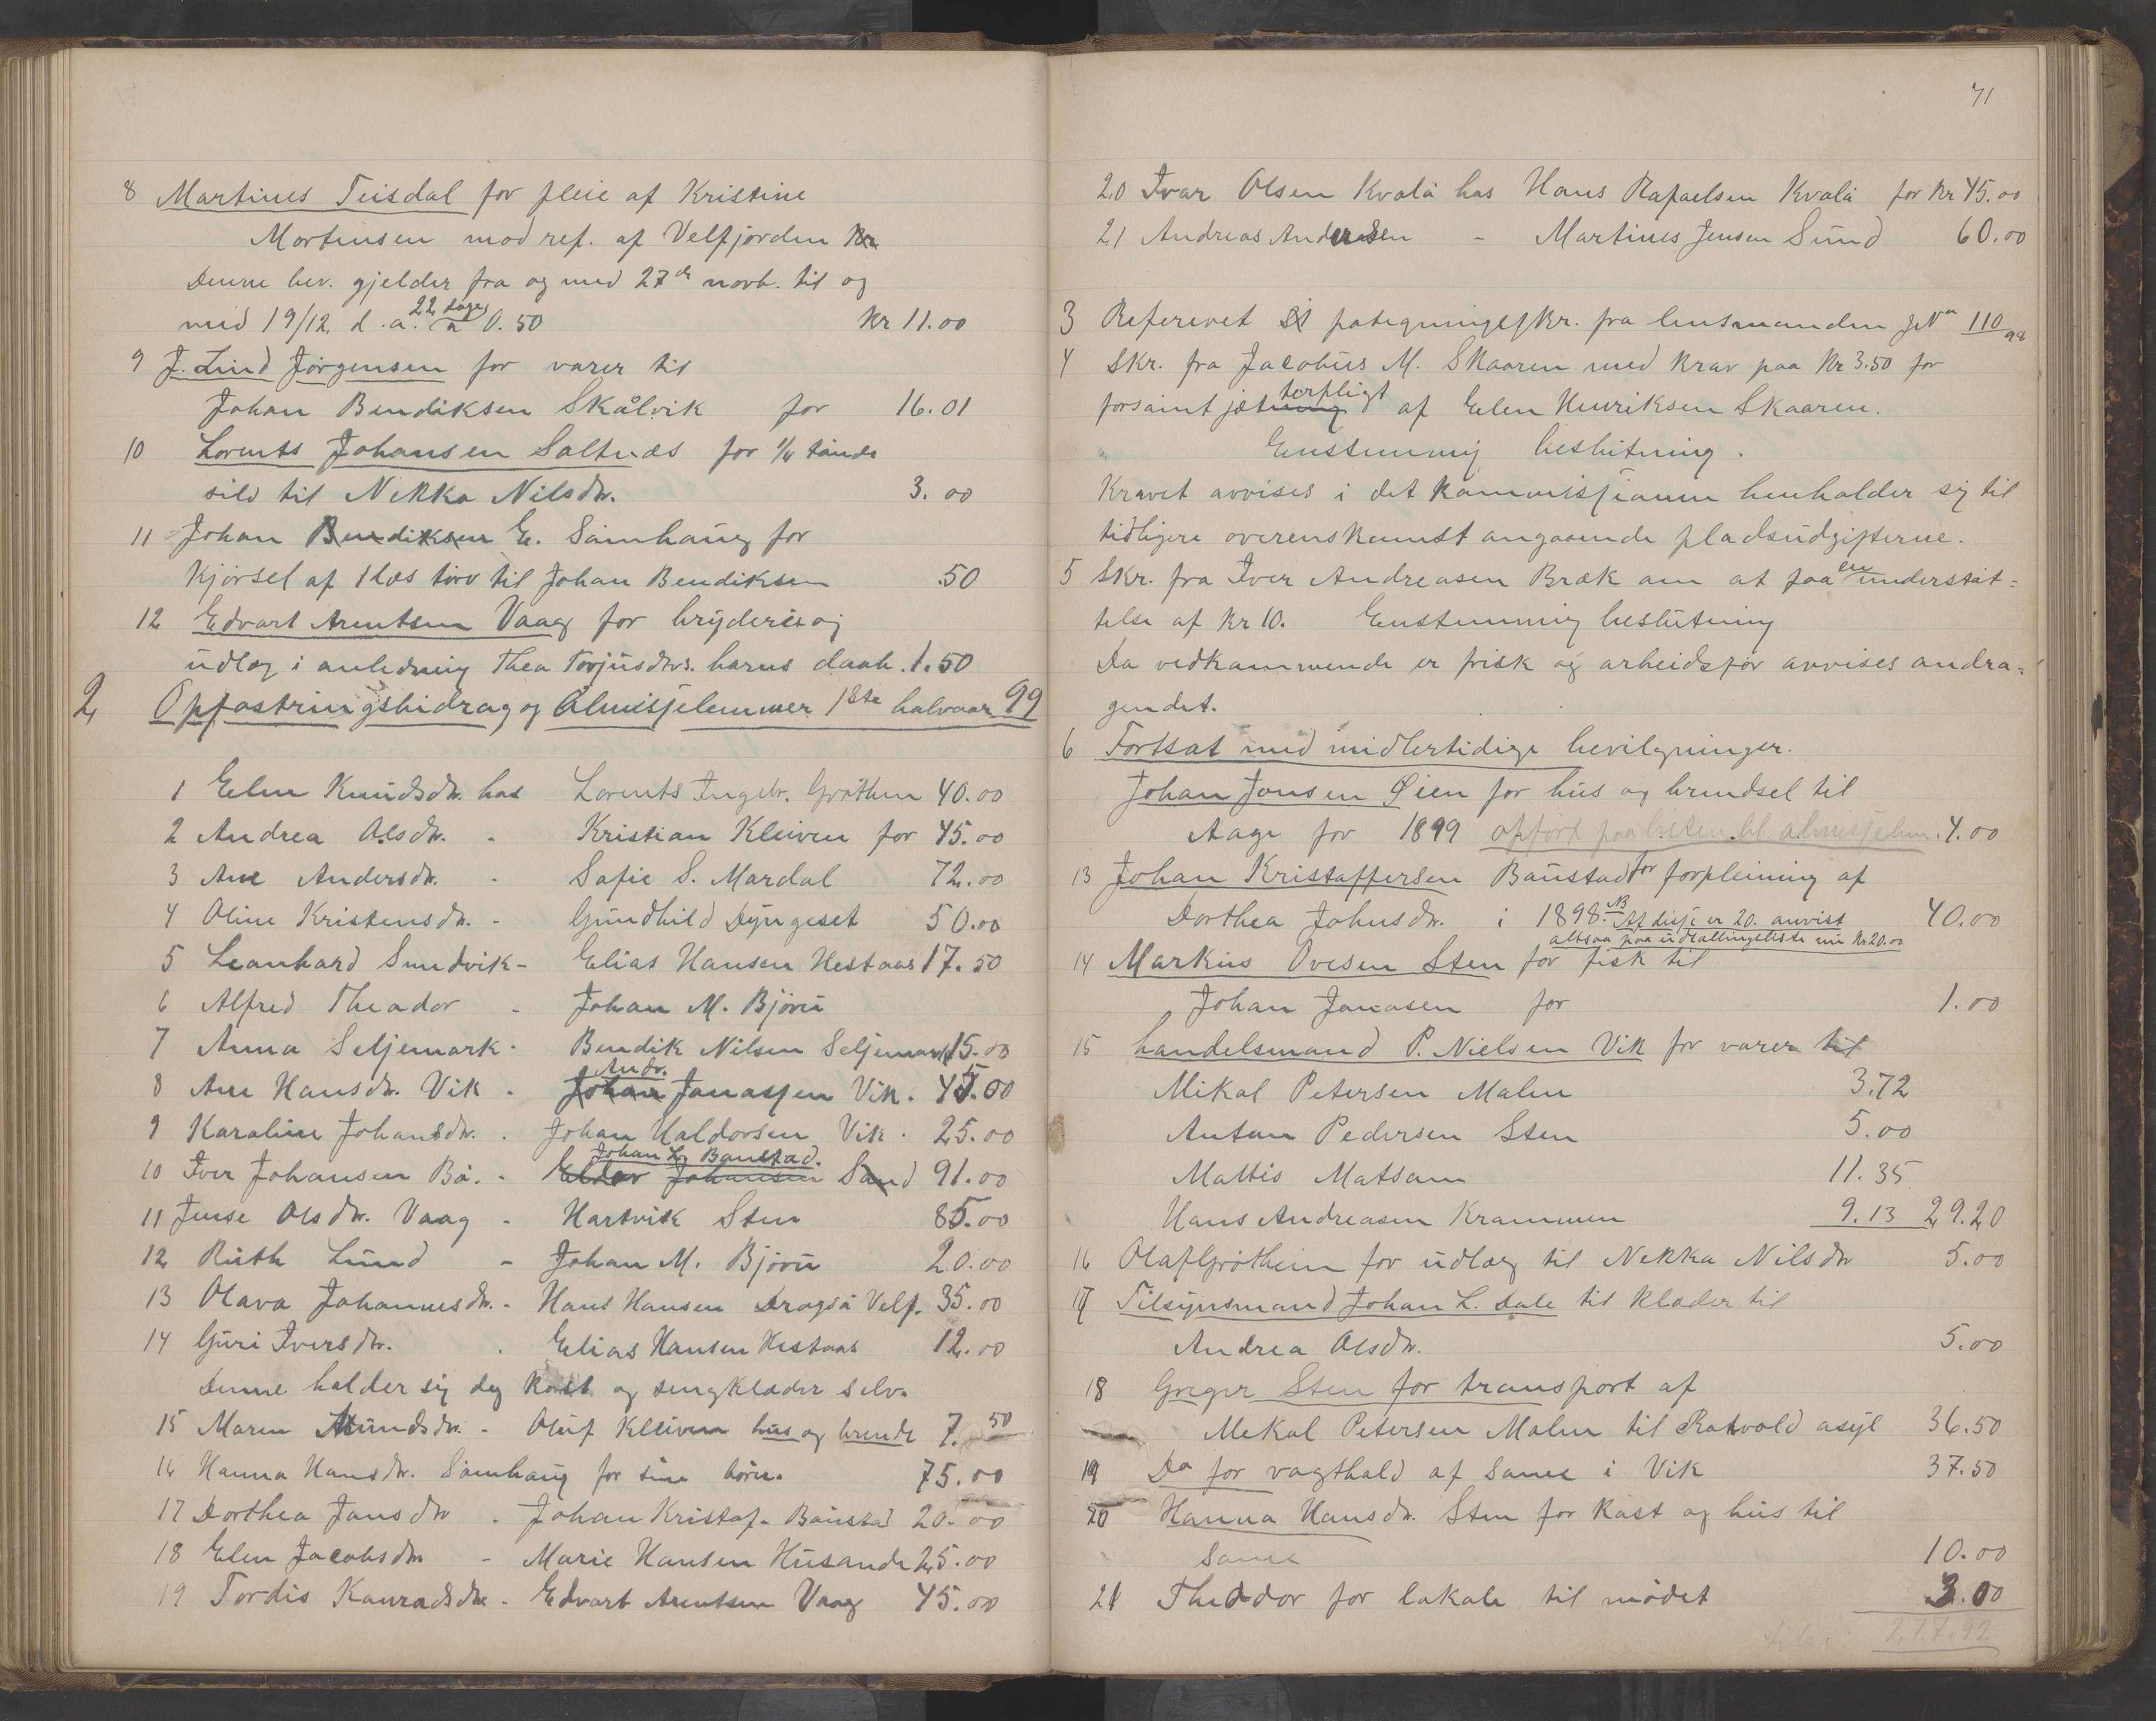 8 Martines Teisdal for pleie af Kristine
Mortensen mod ref. af Velfjorden Kr
Denne bev. gjelder fra og med 27de novb. til og
med 19/12. d. a. 22 dage a 0.50 Kr 11.00
9 J. Lind Jørgensen for varer til
Johan Bendiksen Skålvik for 16.01
10 Lorents Johansen Saltnæs for 1/4 tønde
sild til Nekka Nilsdtr. 3.00
11 Johan Bendiksen E. Sømhaug for
kjørsel af 1 læs torv til Johan Bendiksen .50
12 Edvart Arentsen Vaag for bryderi og
udlæg i anledning Thea Torjusdtrs. barns daab. 1.50
2 Opfostringsbidrag og Almisjelemmer 1ste halvaar 99
1 Elen Knudsdtr. hos Lorents Ingebr. Grøthem 40.00
2 Andrea Olsdtr. - Kristian Kleiven for 45.00
3 Ane Andersdtr. - Sofie S. Mardal 72.00
4 Oline Kristensdtr. - Gundhild Dyngeset 50.00
5 Leonhard Sundvik - Elias Hansen Hestaas 17.50
6 Alfred Theodor - Johan M. Bjøru
7 Anna Seljemark - Bendik Nilsen Seljemark 15.00
8 Ane Hansdtr. Vik - Johan Andr. Jonassen Vik. 45.00
9 Karoline Johansdtr. - Johan Haldorsen Vik. 25.00
10 Iver Johansen Bø. - Eldor Johansen Sand Johan L. Baustad. 91.00
11 Jense Olsdtr. Vaag - Hartvik Sten 85.00
12 Ruth Lund - Johan M. Bjøru 20.00
13 Olava Johannesdtr. - Hans Hansen Dragsø Velf. 35.00
14 Guri Iversdtr. - Elias Hansen Hestaas 12.00
Denne holder sig dog kost og sengklæder selv.
15 Maren Amundsdtr. - Oluf Kleiven hus og brende 7.50
16 Hanna Hansdtr. Sømhaug for sine børn. 75.00
17 Dorthea Jonsdtr - Johan Kristof. Baustad 20.00
18 Elen Jacobsdtr - Marie Hansen Husande 25.00
19 Tordis Konradsdtr - Edvart Arentsen Vaag 45.00
71
20 Ivar Olsen Kvalø hos Hans Rafaelsen Kvalø for Kr 45.00
21 Andreas Andersen - Martines Jensen Sund 60.00
3 Referevet paategningsskr. fra lensmanden JNo 110/98
4 Skr. fra Jacobus M. Skaaren med krav paa Kr 3.50 for
forsømt jætning terpligt af Elen Henriksen Skaaren.
Enstemmig beslutning.
Kravet avvises i det kommissjonen henholder sig til
tidligere overenskomst angaaende pladsudgifterne.
5 Skr. fra Iver Andreasen Bræk om at faa en understøt=
telse af Kr 10. Enstemmig beslutning
Da vedkommende er frisk og arbeidsfør avvises andra=
gendet.
6 Fortsat med midlertidige bevilgninger.
Johan Jonsen Øien for hus og brendsel til
Aage for 1899 opført paa listen bl. almisjelem. 4.00
13 Johan Kristoffersen Baustad for forpleining af
Dorthea Johnsdtr. i 1898. NB Af disse er 20. anvist 40.00
altsaa paa udtallingsliste nu Kr 20.00
14 Markus Ovesen Sten for fisk til
Johan Jonasen for 1.00
15 handelsmand P. Nielsen Vik for varer til
Mikal Petersen Malm 3.72
Anton Pedersen Sten 5.00
Mattis Matsom 11.35
Hans Andreasen Krammen 9.13 29.20
16 Olaf Grøthem for udlæg til Nekka Nilsdtr 5.00
17 Tilsynsmand Johan L. Dale til klæder til
Andrea Olsdtr. 5.00
18 Greger Sten for transport af
Mekal Petersen Malm til Rotvold asyl 36.50
19 Do for vagthold af samme i Vik 37.50
20 Hanna Hansdtr. Sten for kost og hus til
Samme 10.00
21 Theodor for lokale til mødet 3.00
217.92